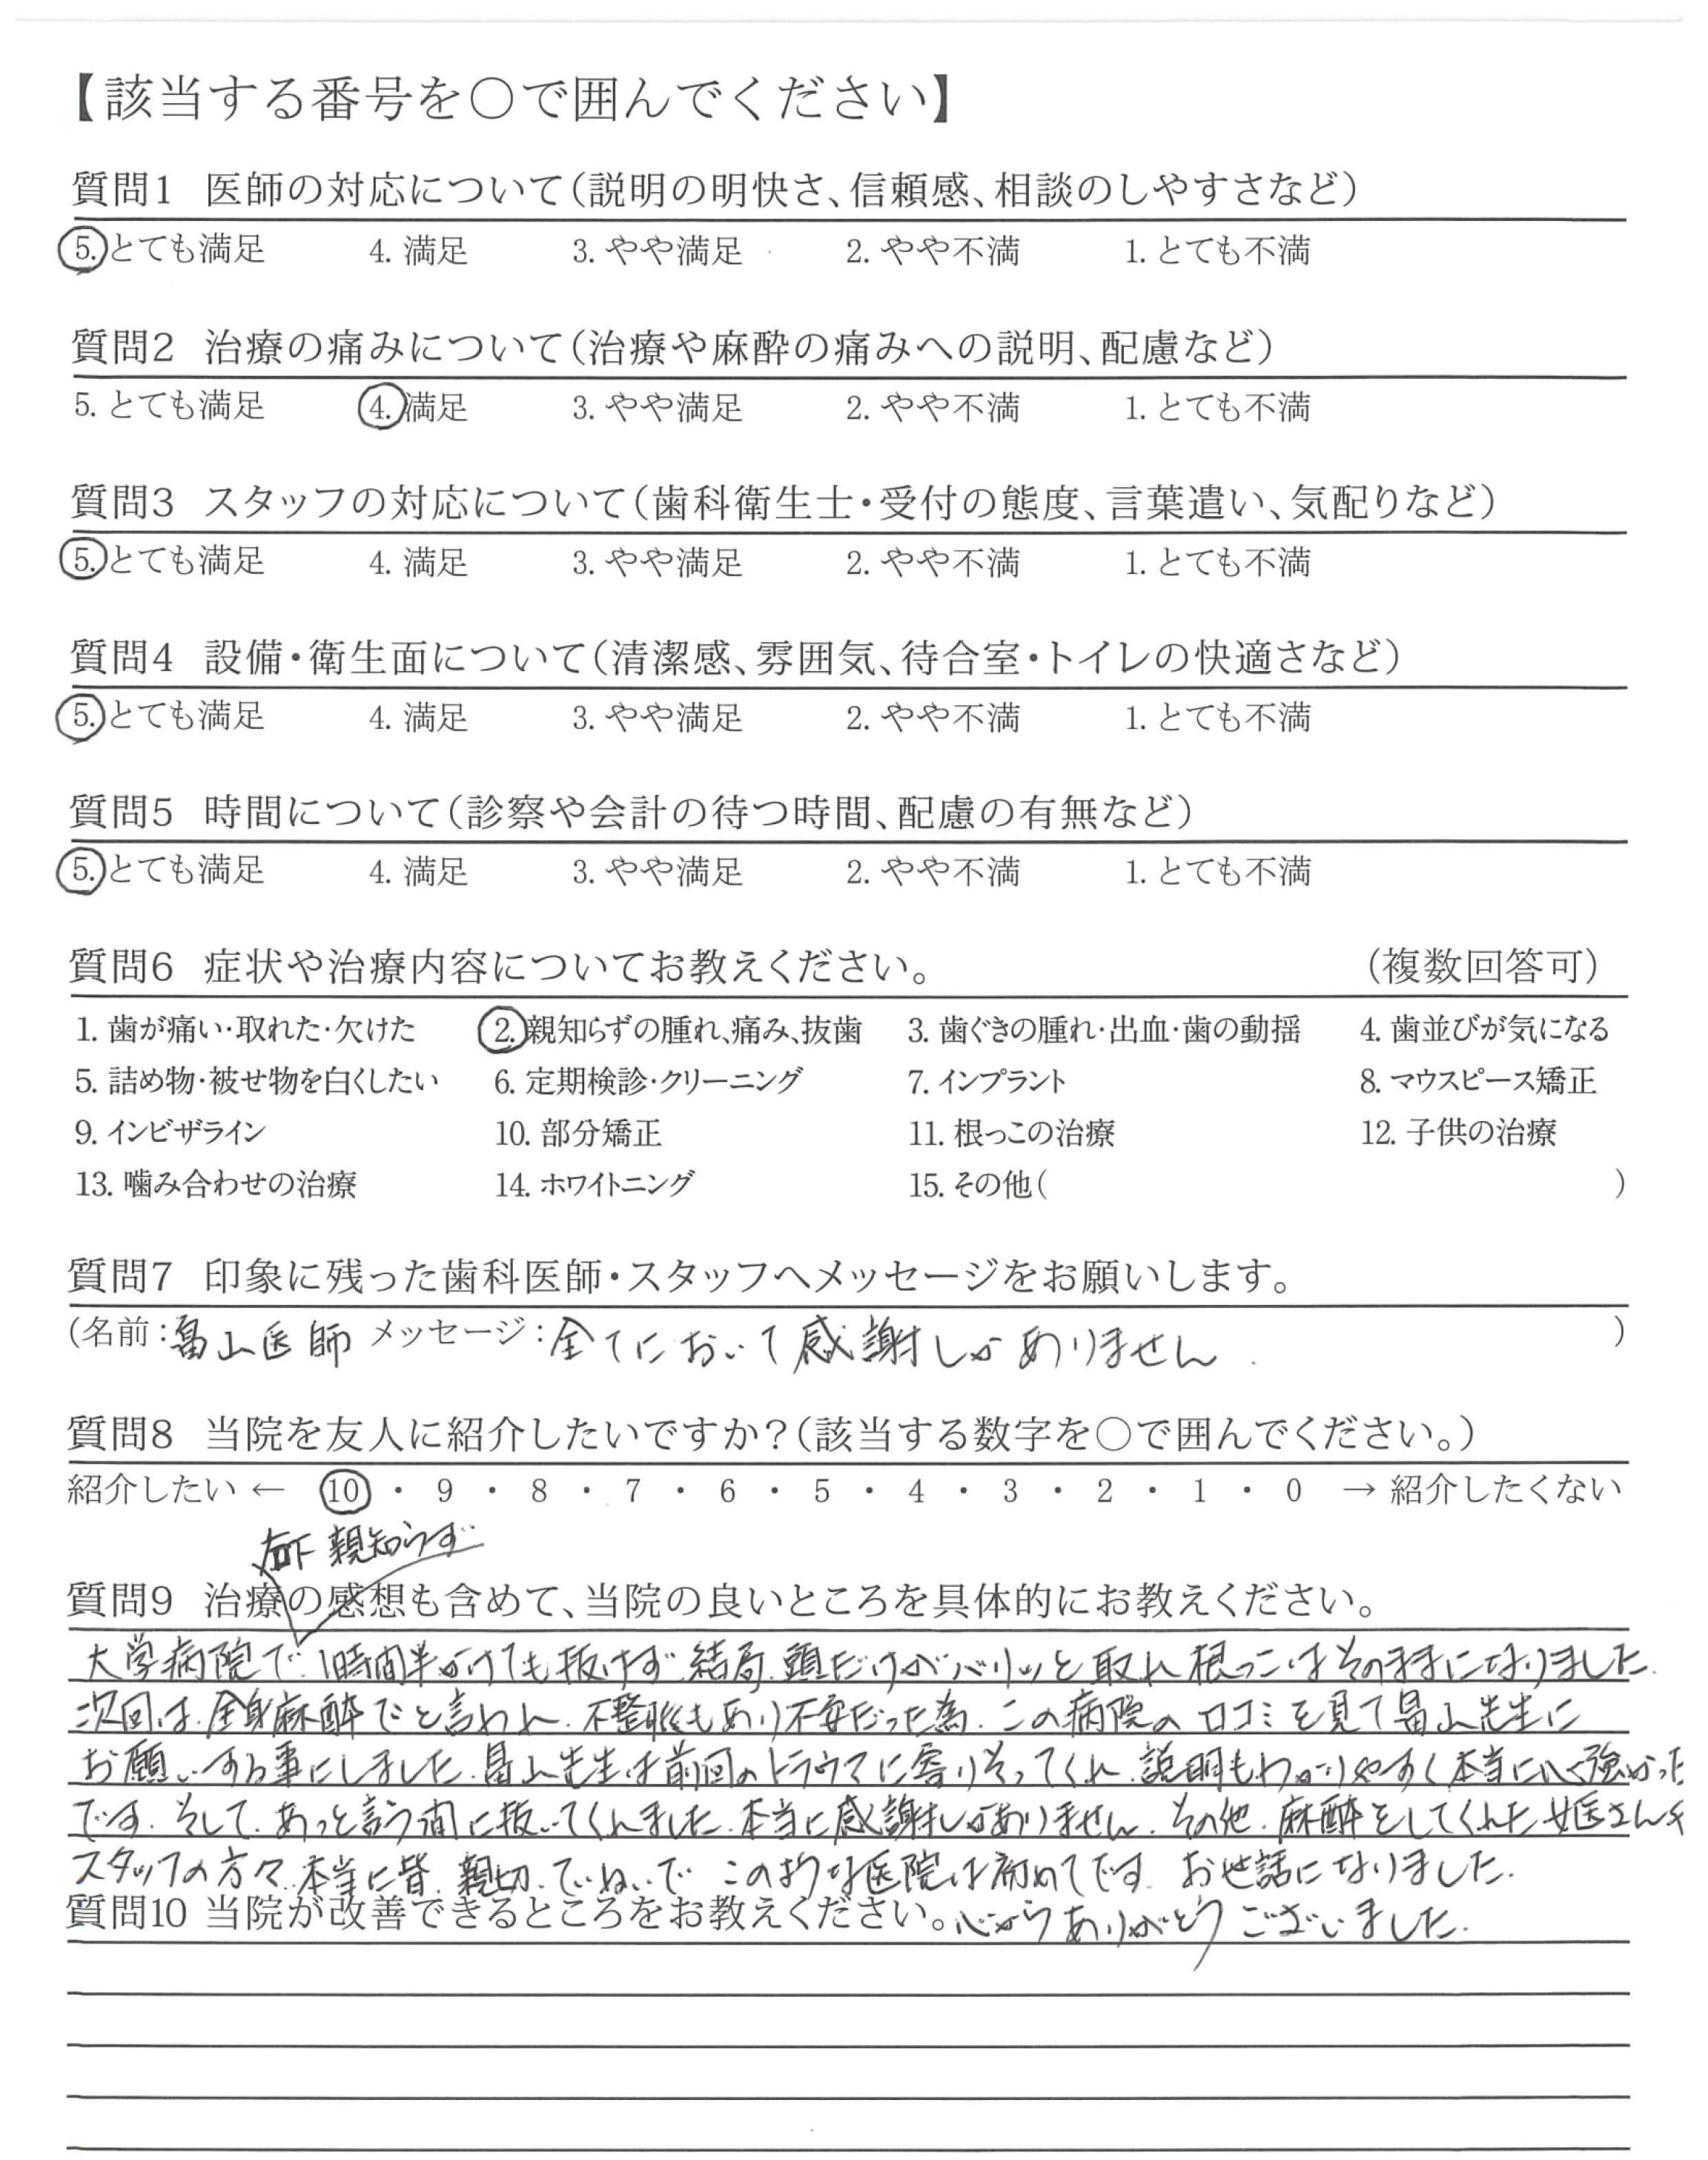 【該当する番号を○で囲んでください】
質問1 医師の対応について(説明の明快さ、信頼感、相談のしやすさなど)
5. とても満足 4. 満足 3. やや満足 2. やや不満 1. とても不満
質問2 治療の痛みについて(治療や麻酔の痛みへの説明、配慮など)
5. とても満足 4. 満足 3. やや満足 2. やや不満 1. とても不満
質問3 スタッフの対応について(歯科衛生士・受付の態度、言葉遣い、気配りなど)
5. とても満足 4. 満足 3. やや満足 2. やや不満 1. とても不満
質問4 設備・衛生面について(清潔感、雰囲気、待合室・トイレの快適さなど)
5. とても満足 4. 満足 3. やや満足 2. やや不満 1. とても不満
質問5 時間について(診察や会計の待つ時間、配慮の有無など)
5. とても満足 4. 満足 3. やや満足 2. やや不満 1. とても不満
質問6 症状や治療内容についてお教えください。 (複数回答可)
1. 歯が痛い・取れた・欠けた 2. 親知らずの腫れ、痛み、抜歯 3. 歯ぐきの腫れ・出血・歯の動揺 4. 歯並びが気になる
5. 詰め物・被せ物を白くしたい 6. 定期検診・クリーニング 7. インプラント 8. マウスピース矯正
9. インビザライン 10. 部分矯正 11. 根っこの治療 12. 子供の治療
13. 噛み合わせの治療 14. ホワイトニング 15. その他( )
質問7 印象に残った歯科医師・スタッフへメッセージをお願いします。
(名前:畠山医師 メッセージ:全てにおいて感謝しかありません. )
質問8 当院を友人に紹介したいですか?(該当する数字を○で囲んでください。)
紹介したい ← 10 ・ 9 ・ 8 ・ 7 ・ 6 ・ 5 ・ 4 ・ 3 ・ 2 ・ 1 ・ 0 → 紹介したくない
下 親知らず
質問9 治療の感想も含めて、当院の良いところを具体的にお教えください。
大学病院で1時間半かけても抜けず.結局.頭だけがバリッと取れ根っこはそのままになりました.
次回は.全身麻酔でと言われ.不整脈もあり不安だった為.この病院の口コミを見て畠山先生に
お願いする事にしました.畠山先生は前回のトラウマに寄りそってくれ.説明もわかりやすく本当に心強かった
です.そして.あっと言う間に抜いてくれました.本当に感謝しかありません.その他.麻酔をしてくれた女医さんや
スタッフの方々.本当に皆.親切.ていねいで このような医院は初めてです.お世話になりました.
質問10 当院が改善できるところをお教えください。心からありがとうございました.